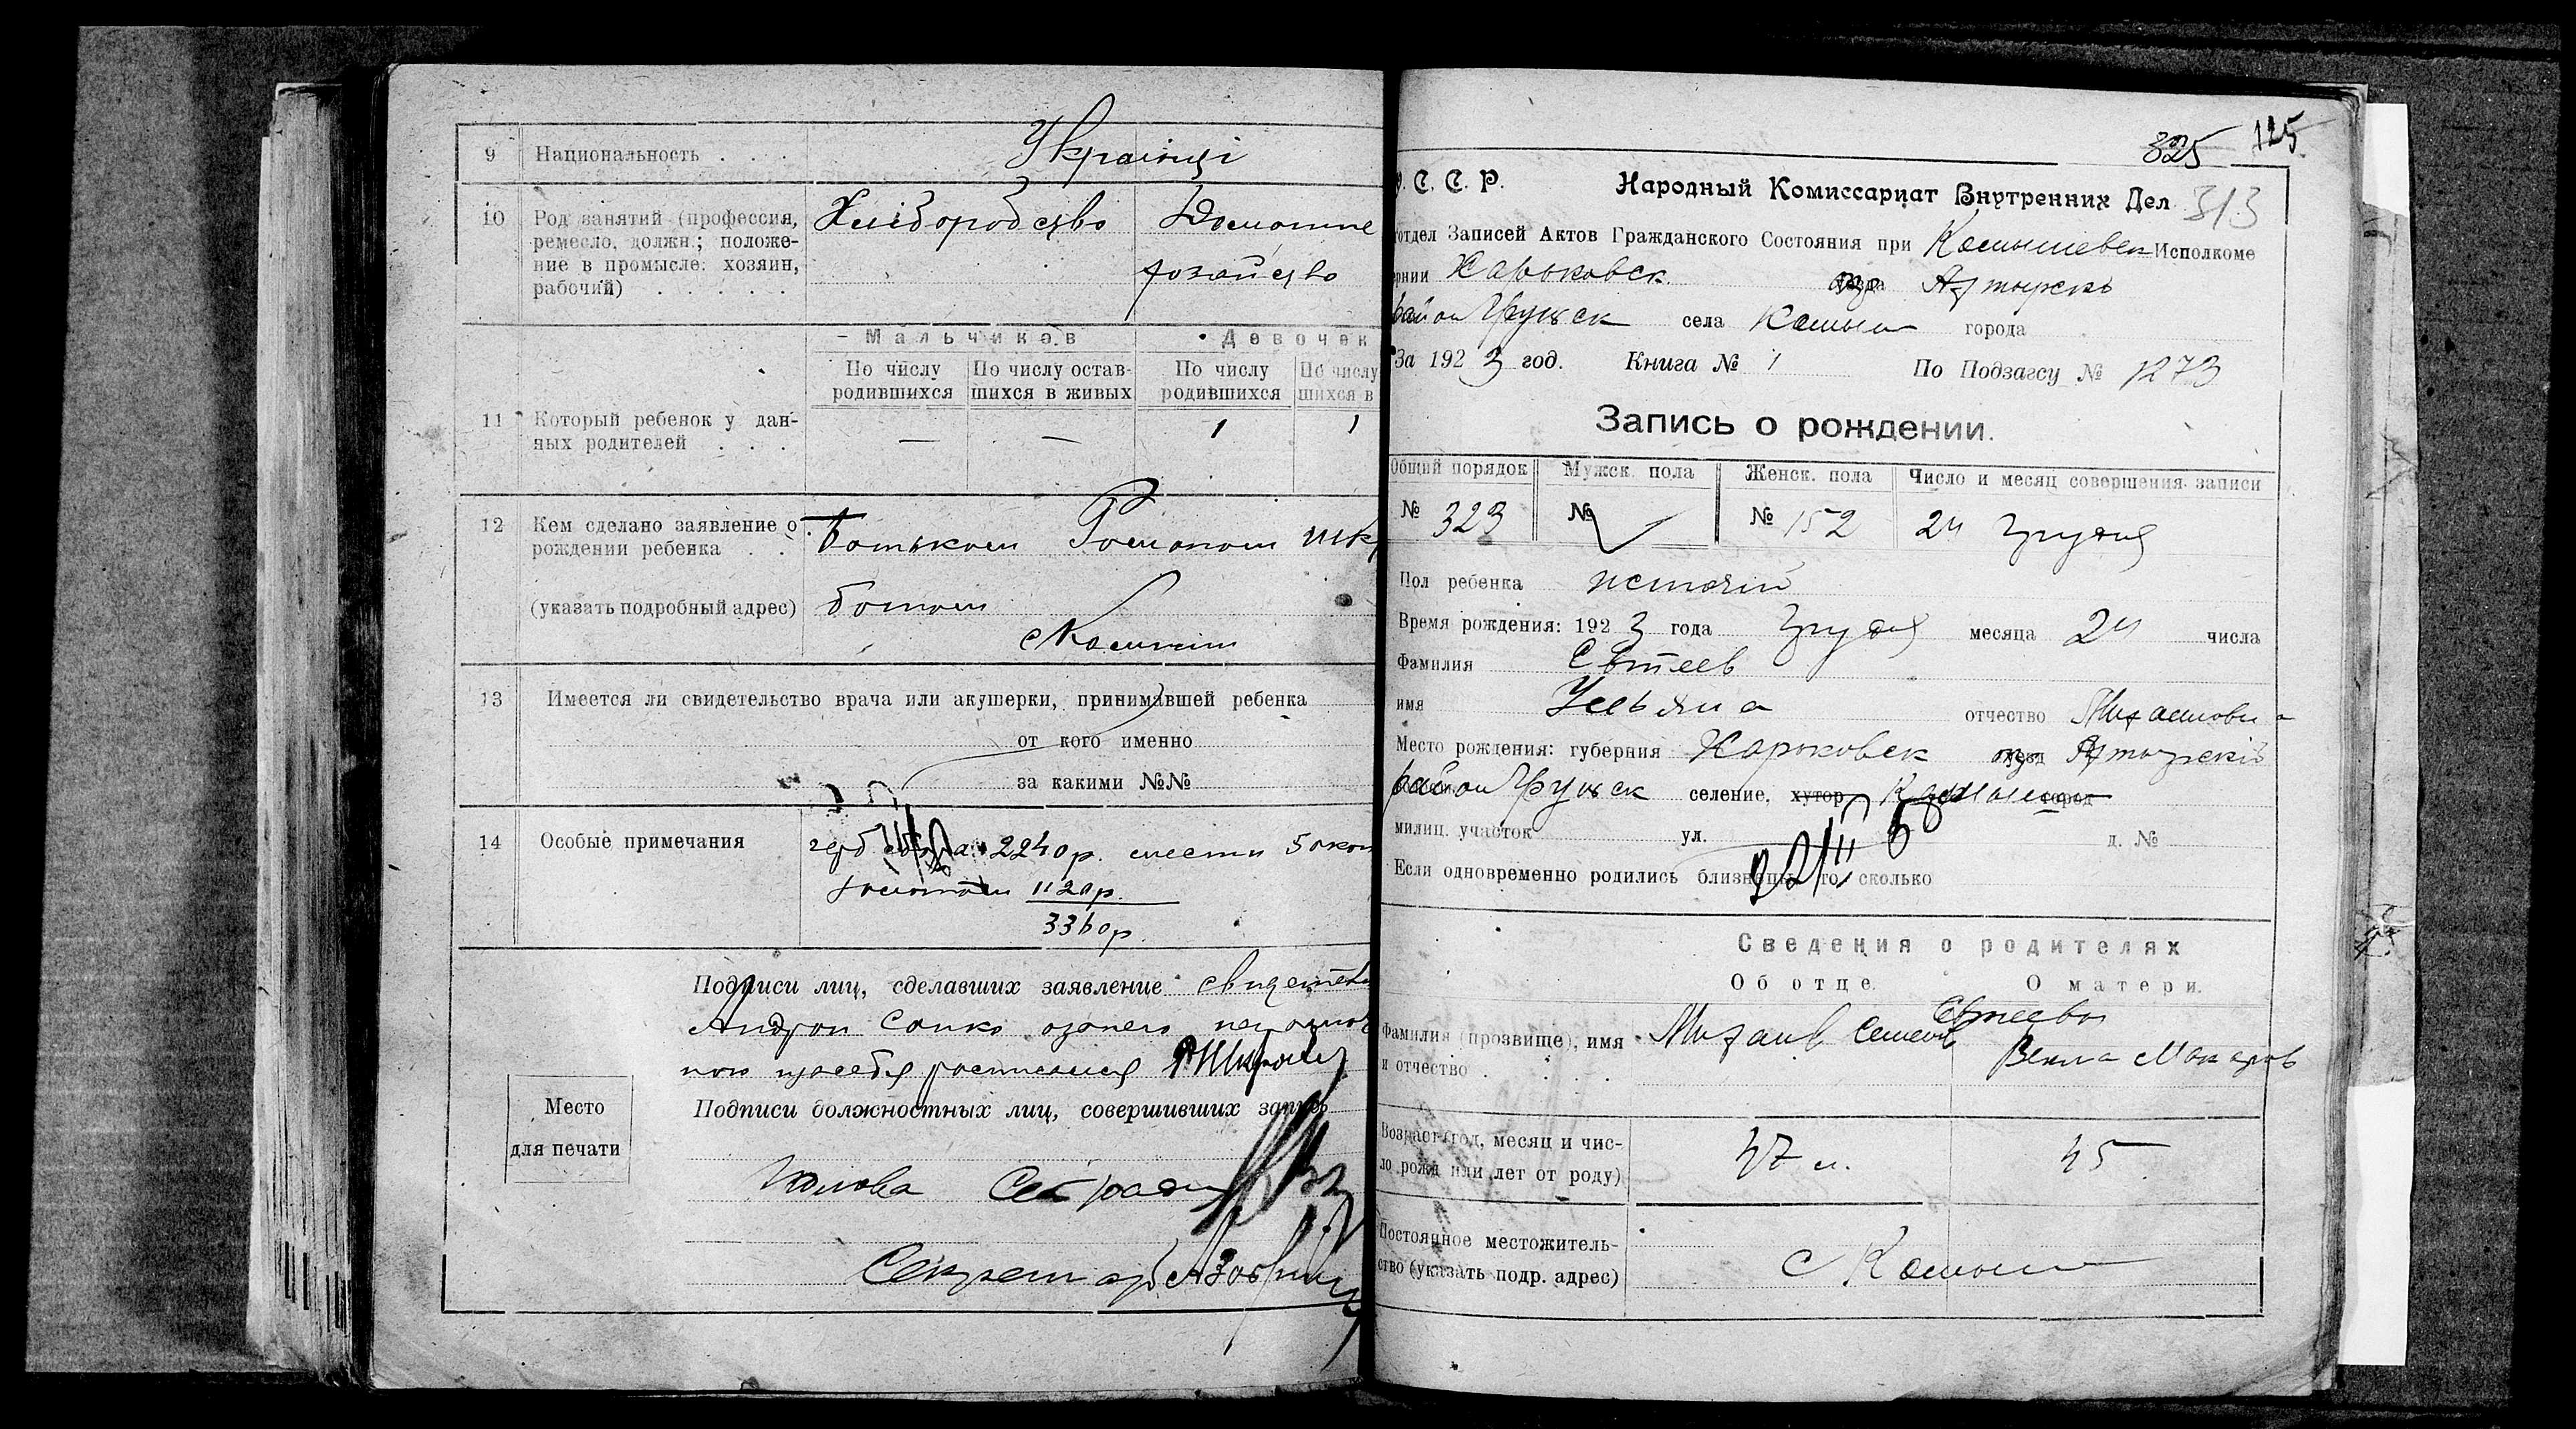 9 Национальность . . . Українці
10 Род занятий (профессия, ремесло, должн.; положение в промысле: хозяин, рабочий) . . . . .
Хліборобство
Домашнє
хозайство
Мальчиков
Девочек
По числу родившихся
По числу оставшихся в живых
По числу родившихся
По числу
шихся в
11 Который ребенок у данных родителей . . .
— — 1 1
12 Кем сделано заявление о рождении ребенка . .
Батьком Романом Шкр
(указать подробный адрес)
батом
с Камиши
13 Имеется ли свидетельство врача или акушерки, принимавшей ребенка
от кого именно
за какими №№
14 Особые примечания
герб 2240 р. 50 коп
1120 р.
3360 р.
Подписи лиц, сделавших заявление свидетель
Андрон Сапко
расписался
Подписи должностных лиц, совершивших запись
Место
для печати
Голова Сельради
Секретарь
325 125
313
С. С. Р. Народный Комиссариат Внутренних Дел
отдел Записей Актов Гражданского Состояния при Камышевск Исполкоме
рнии Харьковск Ахтырск
район Грунск села Камыш города
За 1923 год. Книга № 1 По Подзагсу № 1273
Запись о рождении.
Общий порядок
Мужск. пола
Женск. пола
Число и месяц совершения записи
№ 323 № № 152 24 грудня
Пол ребенка жіночій
Время рождения: 1923 года грудня месяца 24 числа
Фамилия Євтеев
имя Ульяна отчество Михаиловна
Место рождения: губерния Харьковск Ахтырскій
район Грунск селение, хутор город
милиц. участок ул. д. №
22/II
Если одновременно родились близнецы, то сколько
Сведения о родителях
Об отце. О матери.
Фамилия (прозвище), имя и отчество . . .
Євтеевы
Михаил Семенов
Векла Макаров
Возраст (год, месяц и число рожд. или лет от роду)
47 л. 45
Постоянное местожительство (указать подр. адрес)
с Камыш